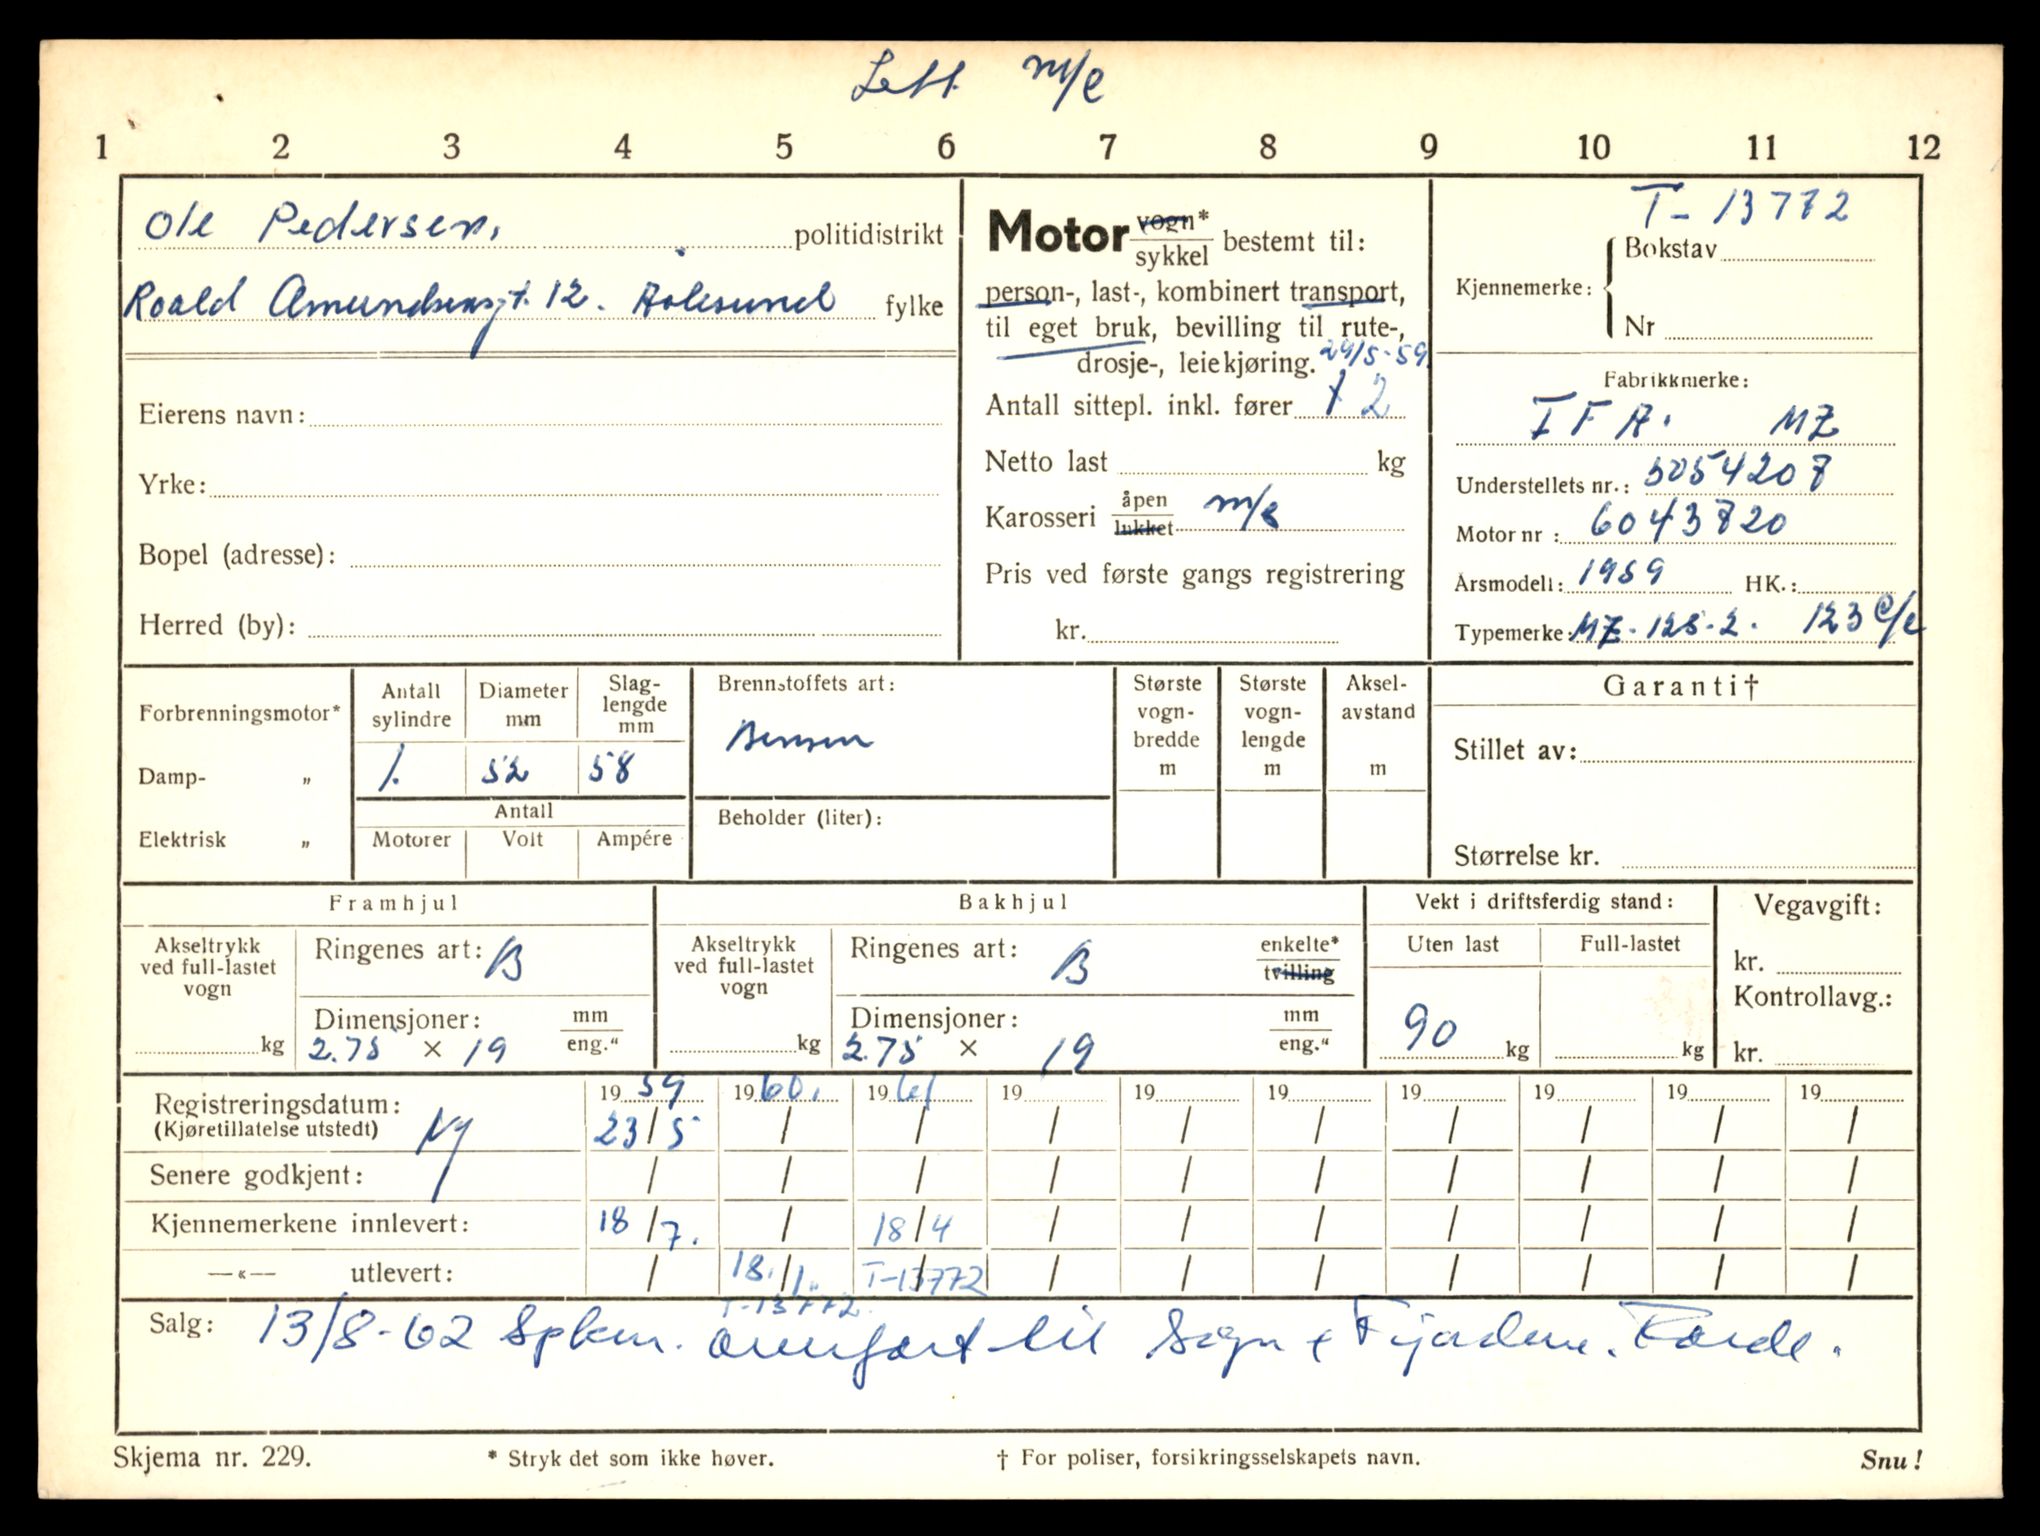 Lett m/c
1 2 3 4 5 6 7 8 9 10 11 12
Ole Pedersen, politidistrikt
Roald Amundsensgt. 12. Aalesund fylke
Eierens navn:
Yrke:
Bopel (adresse):
Herred (by):
Motor vogn* sykkel bestemt til:
person-, last-, kombinert transport,
til eget bruk, bevilling til rute-,
drosje-, leiekjøring. 29/5-59.
Antall sittepl. inkl. fører 1 2
Netto last kg
Karosseri åpen lukket m/c
Pris ved første gangs registrering
kr.
T-13772
Kjennemerke: Bokstav
Nr
Fabrikkmerke:
IFA. MZ
Understellets nr.: 5054207
Motor nr : 6043820
Årsmodell: 1959 HK.:
Typemerke: MZ-125-2. 123 c/c
Forbrenningsmotor*
Damp- „
Elektrisk „
Antall sylindre Diameter mm Slag-lengde mm
1. 52 58
Antall
Motorer Volt Ampére
Brennstoffets art:
Bensin
Beholder (liter):
Største vogn-bredde m
Største vogn-lengde m
Aksel-avstand m
Garanti†
Stillet av:
Størrelse kr.
Framhjul
Akseltrykk ved full-lastet vogn kg
Ringenes art: B
Dimensjoner: mm eng."
2.75 × 19
Bakhjul
Akseltrykk ved full-lastet vogn kg
Ringenes art: B enkelte* tvilling
Dimensjoner: mm eng."
2.75 × 19
Vekt i driftsferdig stand:
Uten last Full-lastet
90 kg kg
Vegavgift:
kr.
Kontrollavg.:
kr.
19 59 19 60. 19 61 19 19 19 19 19 19 19
Registreringsdatum: Ny 23/5 / / / / / / / / /
(Kjøretillatelse utstedt)
Senere godkjent: / / / / / / / / / /
Kjennemerkene innlevert: 18/7. / 18/4 / / / / / / /
—«— utlevert: / 18./1. T-13772 / / / / / / /
T-13772.
Salg: 13/8-62 Spkm. overført til Sogn & Fjordane. Førde.
Skjema nr. 229. * Stryk det som ikke høver. † For poliser, forsikringsselskapets navn. Snu!